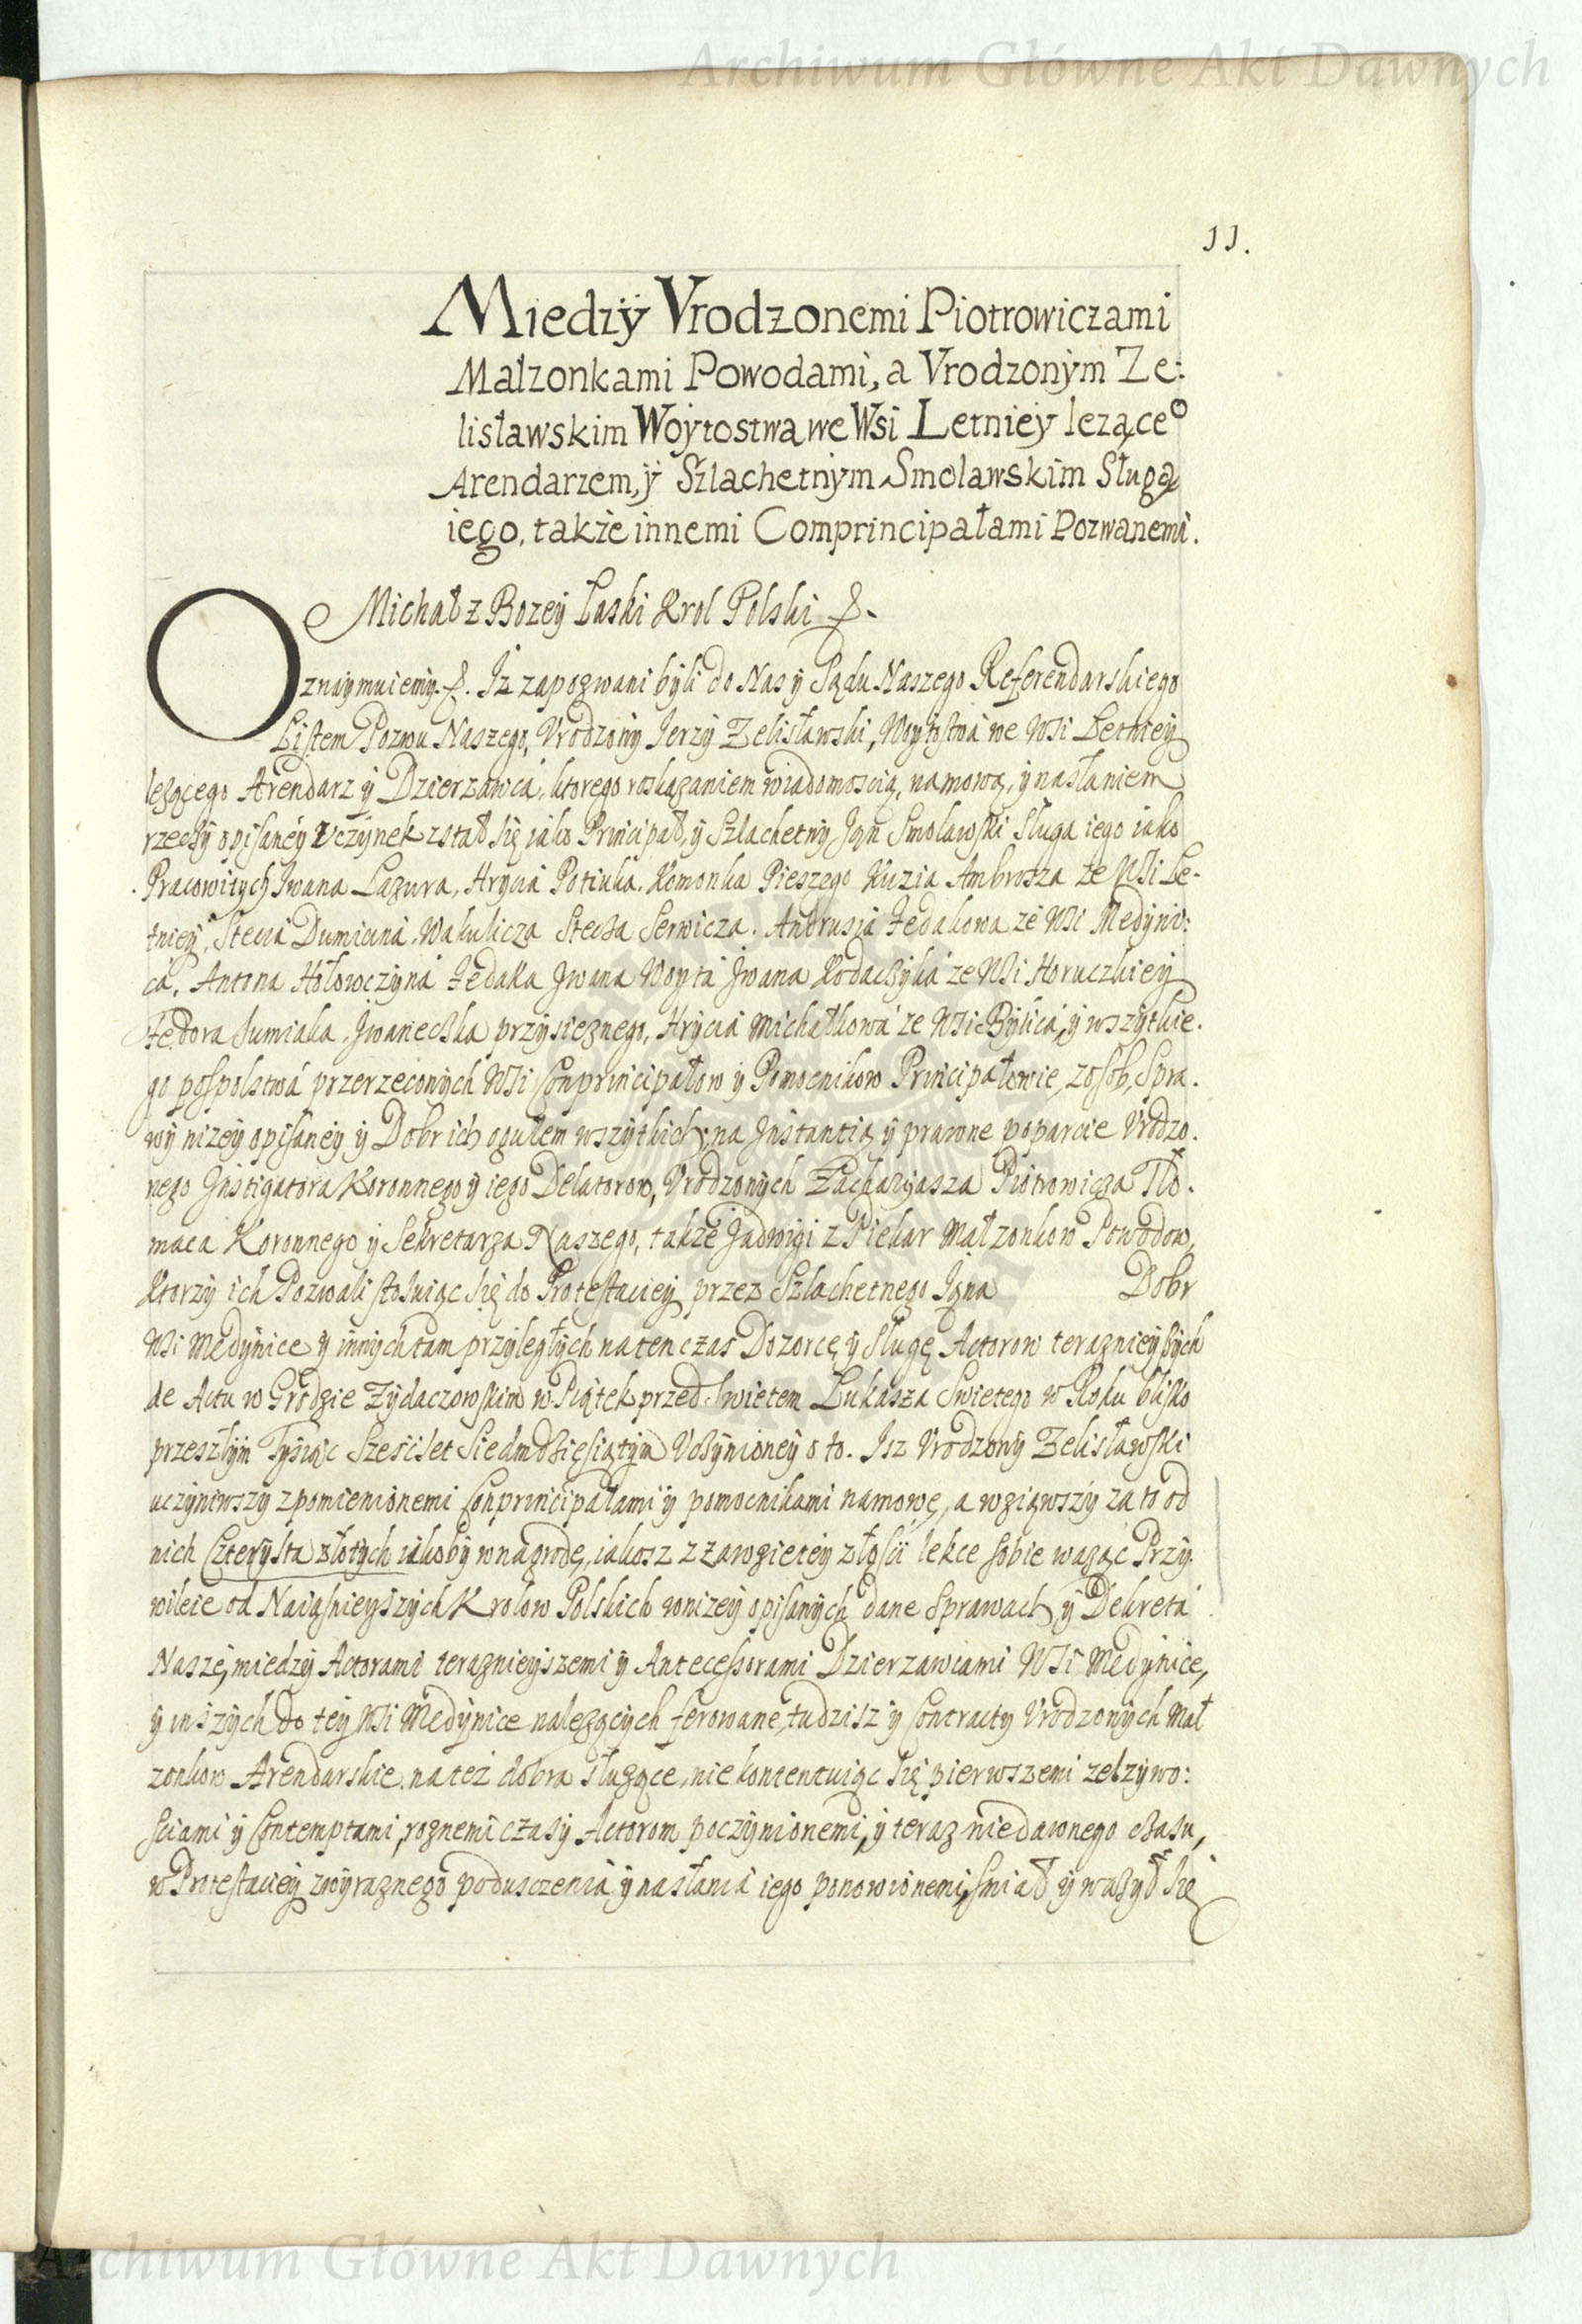 Archiwum Główne Akt Dawnych
11.
Miedzÿ Vrodzonemi Piotrowiczami
Małzonkami Powodami, a Vrodzonÿm Ze:
lisławskim Woÿtostwa we Wsi Letnieÿ lezące⁰
Arendarzem, ÿ Szlachetnÿm Smolawskim Sługą
iego, także innemi Comprincipałami Pozwanemi.
Michał z Bozeÿ Łaski Krol Polski &.
Oznaÿmuiemÿ &. Iż zapozwani bÿli do Nas ÿ Sądu Naszego Referendarskiego
Listem Pozwu Naszego, Vrodzonÿ Jerzÿ Zelisławski, Woÿtostwa we Wsi Letnieÿ
lezącego Arendarz ÿ Dzierzawca, ktorego roskazaniem wiadomoscią, namową, ÿ nasłaniem
rzeczÿ opisaneÿ Vczÿnek zstał się iako Principał, ÿ Szlachetnÿ Jan Smolawski Sługa iego iako
Pracowitÿch Iwana Lazura, Hrÿcia Potiuka. Komonka Pieszego Kuzia Ambrosza ze Wsi Le-
tnieÿ, Stecia Dumicina. Wakulicza Steczka Serwicza. Andrusia Fedakowa ze Wsi Medÿni:
ca. Antona Hołowczÿna Fedaka Iwana Woÿta Iwana Kodaczÿka ze Wsi Horuczkieÿ
Fedora Sumiaka. Iwaneczka przÿsieznego, Hrÿcia Michałkowa ze Wsi Bÿlica, ÿ wszÿtkie.
go pospolstwa przerzeconÿch Wsi Conprincipałow ÿ Pomocnikow Principałowie, zosob, Spra.
wÿ nizeÿ opisaneÿ ÿ Dobr ich ogułem wszÿtkich; na Instantią ÿ prawne poparcie Vrodzo.
nego Instigatora Koronnego ÿ iego Delatorow, Vrodzonÿch Zacharÿasza Piotrowicza Tło.
maca Koronnego ÿ Sekretarza Naszego, także Jadwigi z Piekar Małzonkow Powodow,
Ktorzÿ ich Pozwali stosuiąc się do Protestacieÿ przez Szlachetnego Jana Dobr
Wsi Medÿnice ÿ innÿch tam przÿległÿch na ten czas Dozorcę ÿ Sługę Actorow teraznieÿszÿch
de Actu w Grodzie Zÿdaczowskim w Piątek przed Swietem Lukasza Swietego w Roku blisko
przeszłÿm Tÿsiąc Szesćset Siedmdziesiątÿm Vczÿnioneÿ o to. Isz Vrodzonÿ Zelisławski
uczÿniwszÿ z pomienionemi Conprincipałami ÿ pomocnikami namowę, a wziąwszÿ za to od
nich Czterÿsta złotÿch iakobÿ w nagrodę, iakosz z zawzieteÿ złosci lekce sobie waząc Przÿ.
wileie od Naiasnieÿszÿch Krolow Polskich w nizeÿ opisanÿch dane sprawach, ÿ Dekreta
Nasze, miedzÿ Actorami teraznieÿszemi ÿ Antecessorami Dzierzawcami Wsi Medÿnice,
ÿ inszÿch do teÿ Wsi Medÿnice nalezącÿch ferowane, tudzisz ÿ Contractÿ Vrodzonÿch Mał
zonkow Arendarskie, na też dobra słuzące, nie kontentuiąc się pierwszemi zelzÿwo:
sciami ÿ Contemptami, roznemi czasÿ Actorom poczÿnionemi, ÿ teraz niedawnego czasu,
w Protestacieÿ wÿraznego poduszczenia ÿ nasłania iego ponowionemi, smiał ÿ wazÿł się
Archiwum Główne Akt Dawnych